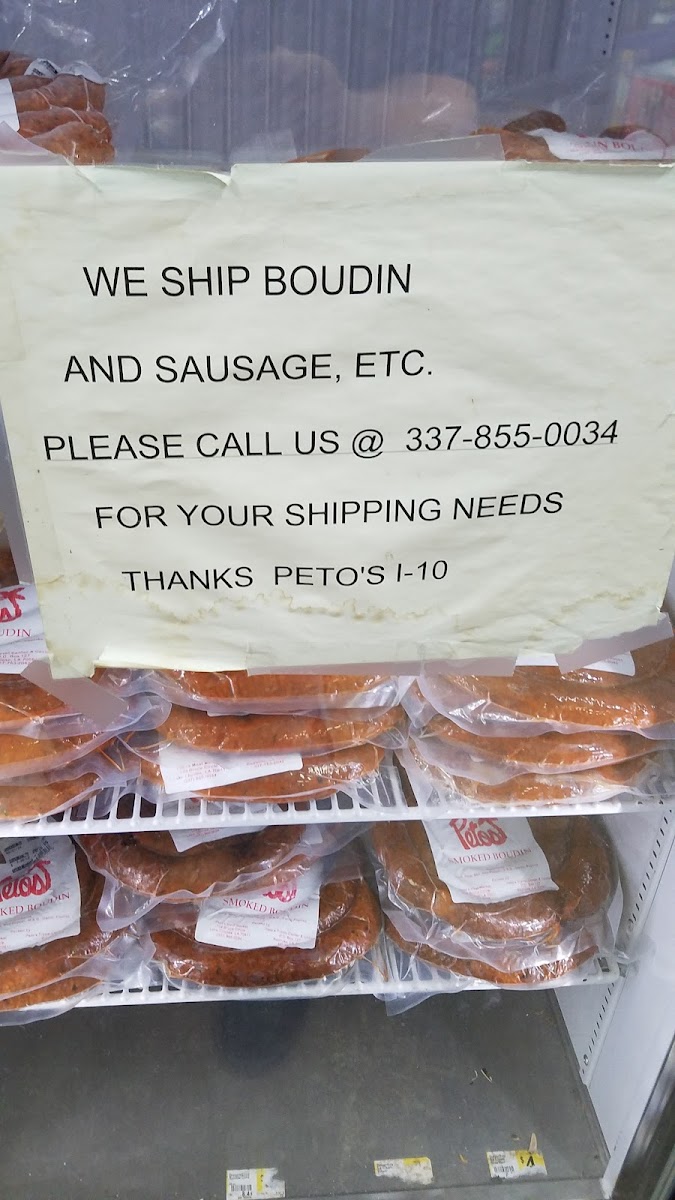 WE SHIP BOUDIN
AND SAUSAGE, ETC.
PLEASE CALL US @ 337-855-0034
FOR YOUR SHIPPING NEEDS
THANKS PETO'S I-10
Peto's
SMOKED BOUDIN
SMOKED BOUDIN